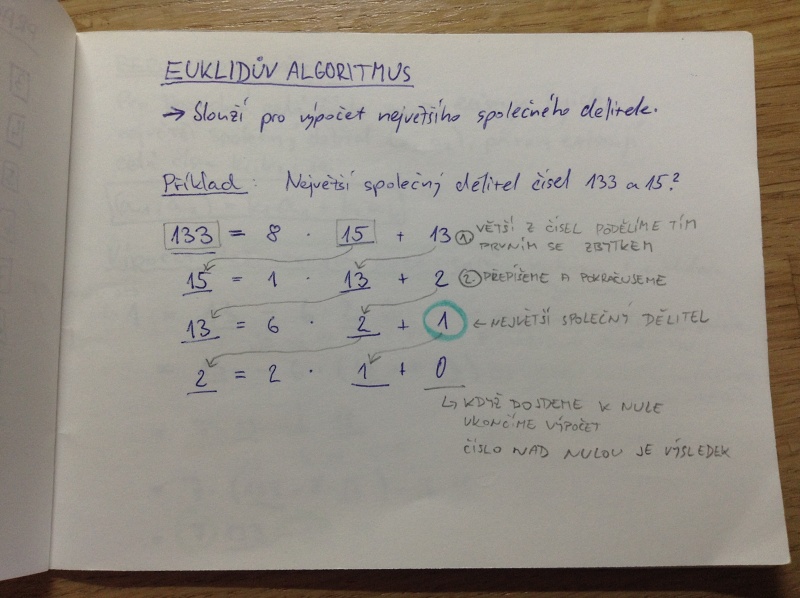 EUKLIDŮV ALGORITMUS
→ Slouží pro výpočet největšího společného dělitele.
Příklad: Největší společný dělitel čísel 133 a 15?
133 = 8 · 15 + 13 ① VĚTŠÍ Z ČÍSEL PODĚLÍME TÍM
PRVNÍM SE ZBYTKEM
15 = 1 · 13 + 2 ② PŘEPÍŠEME A POKRAČUJEME
13 = 6 · 2 + 1 ← NEJVĚTŠÍ SPOLEČNÝ DĚLITEL
2 = 2 · 1 + 0
↳ KDYŽ DOJDEME K NULE
UKONČÍME VÝPOČET
ČÍSLO NAD NULOU JE VÝSLEDEK